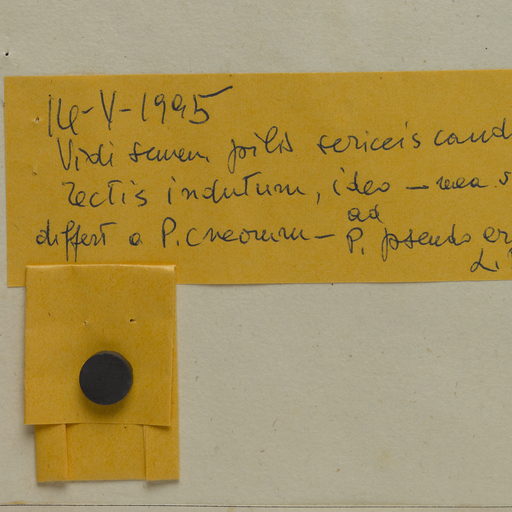 14-V-1995
Vidi semen pilis sericeis cand
rectis indutum, ideo – mea s
differt a P. cneorum – ad
P. pseudo er
L.